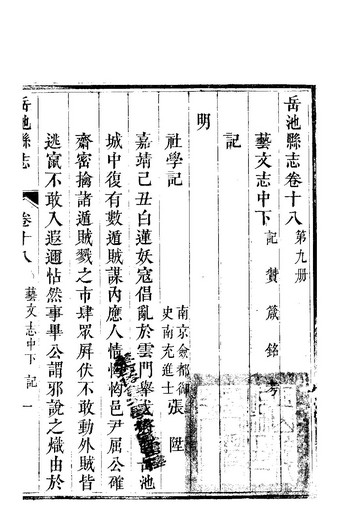 岳池縣志卷十八 第九册
藝文志中下 記 贊 箴 銘 考
記
明
社學記 南京僉都御史南充進士 張陞
嘉靖己丑白蓮妖寇倡亂於雲門舉
岳池
城中復有數遁賊謀內應人情恟恟邑尹屈公確
齋密擒諸遁賊戮之市肆眾屏伏不敢動外賊皆
逃竄不敢入遐邇怙然事畢公謂邪說之熾由於
岳池縣志 卷十八 藝文志中下 記 一